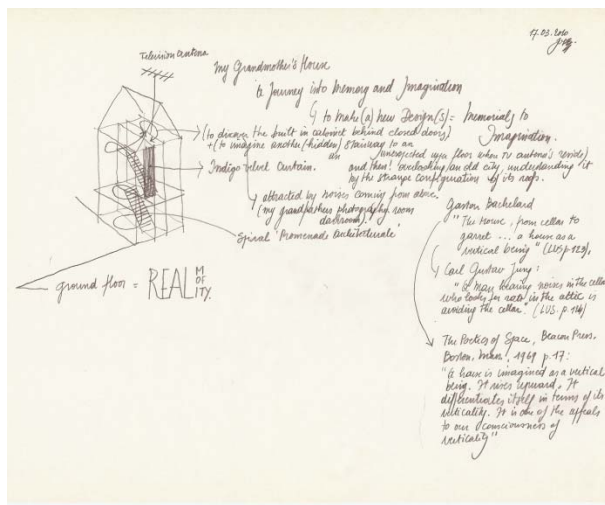 17.03.2010
Television Antenna
My Grandmother's House
a Journey into Memory and Imagination
to make (a) new Design(s) = Memorials to
Imagination.
(to discover the built in cabinet behind closed doors)
+ (to imagine another (hidden) stairway to an
an unexpected upper floor where TV antenna's reside)
and then! overlooking an old city, understanding it
by the strange configuration of its roofs.
Indigo velvet Curtain.
attracted by noises coming from above.
(my grandfathers photography room
darkroom)
Spiral 'Promenade Architecturale'
ground floor = REAL M OF ITY.
Gaston Bachelard
"The House, from cellar to
garret ... a house as a
vertical being" (LUS p. 123).
Carl Gustav Jung:
"A man hearing noises in the cellar
who looks for rats in the attic is
avoiding the cellar." (LUS. p. 124)
The Poetics of Space, Beacon Press,
Boston, Mass, 1969 p. 17:
"A house is imagined as a vertical
being. It rises upward. It
differentiates itself in terms of its
verticality. It is one of the appeals
to our consciousness of
verticality"